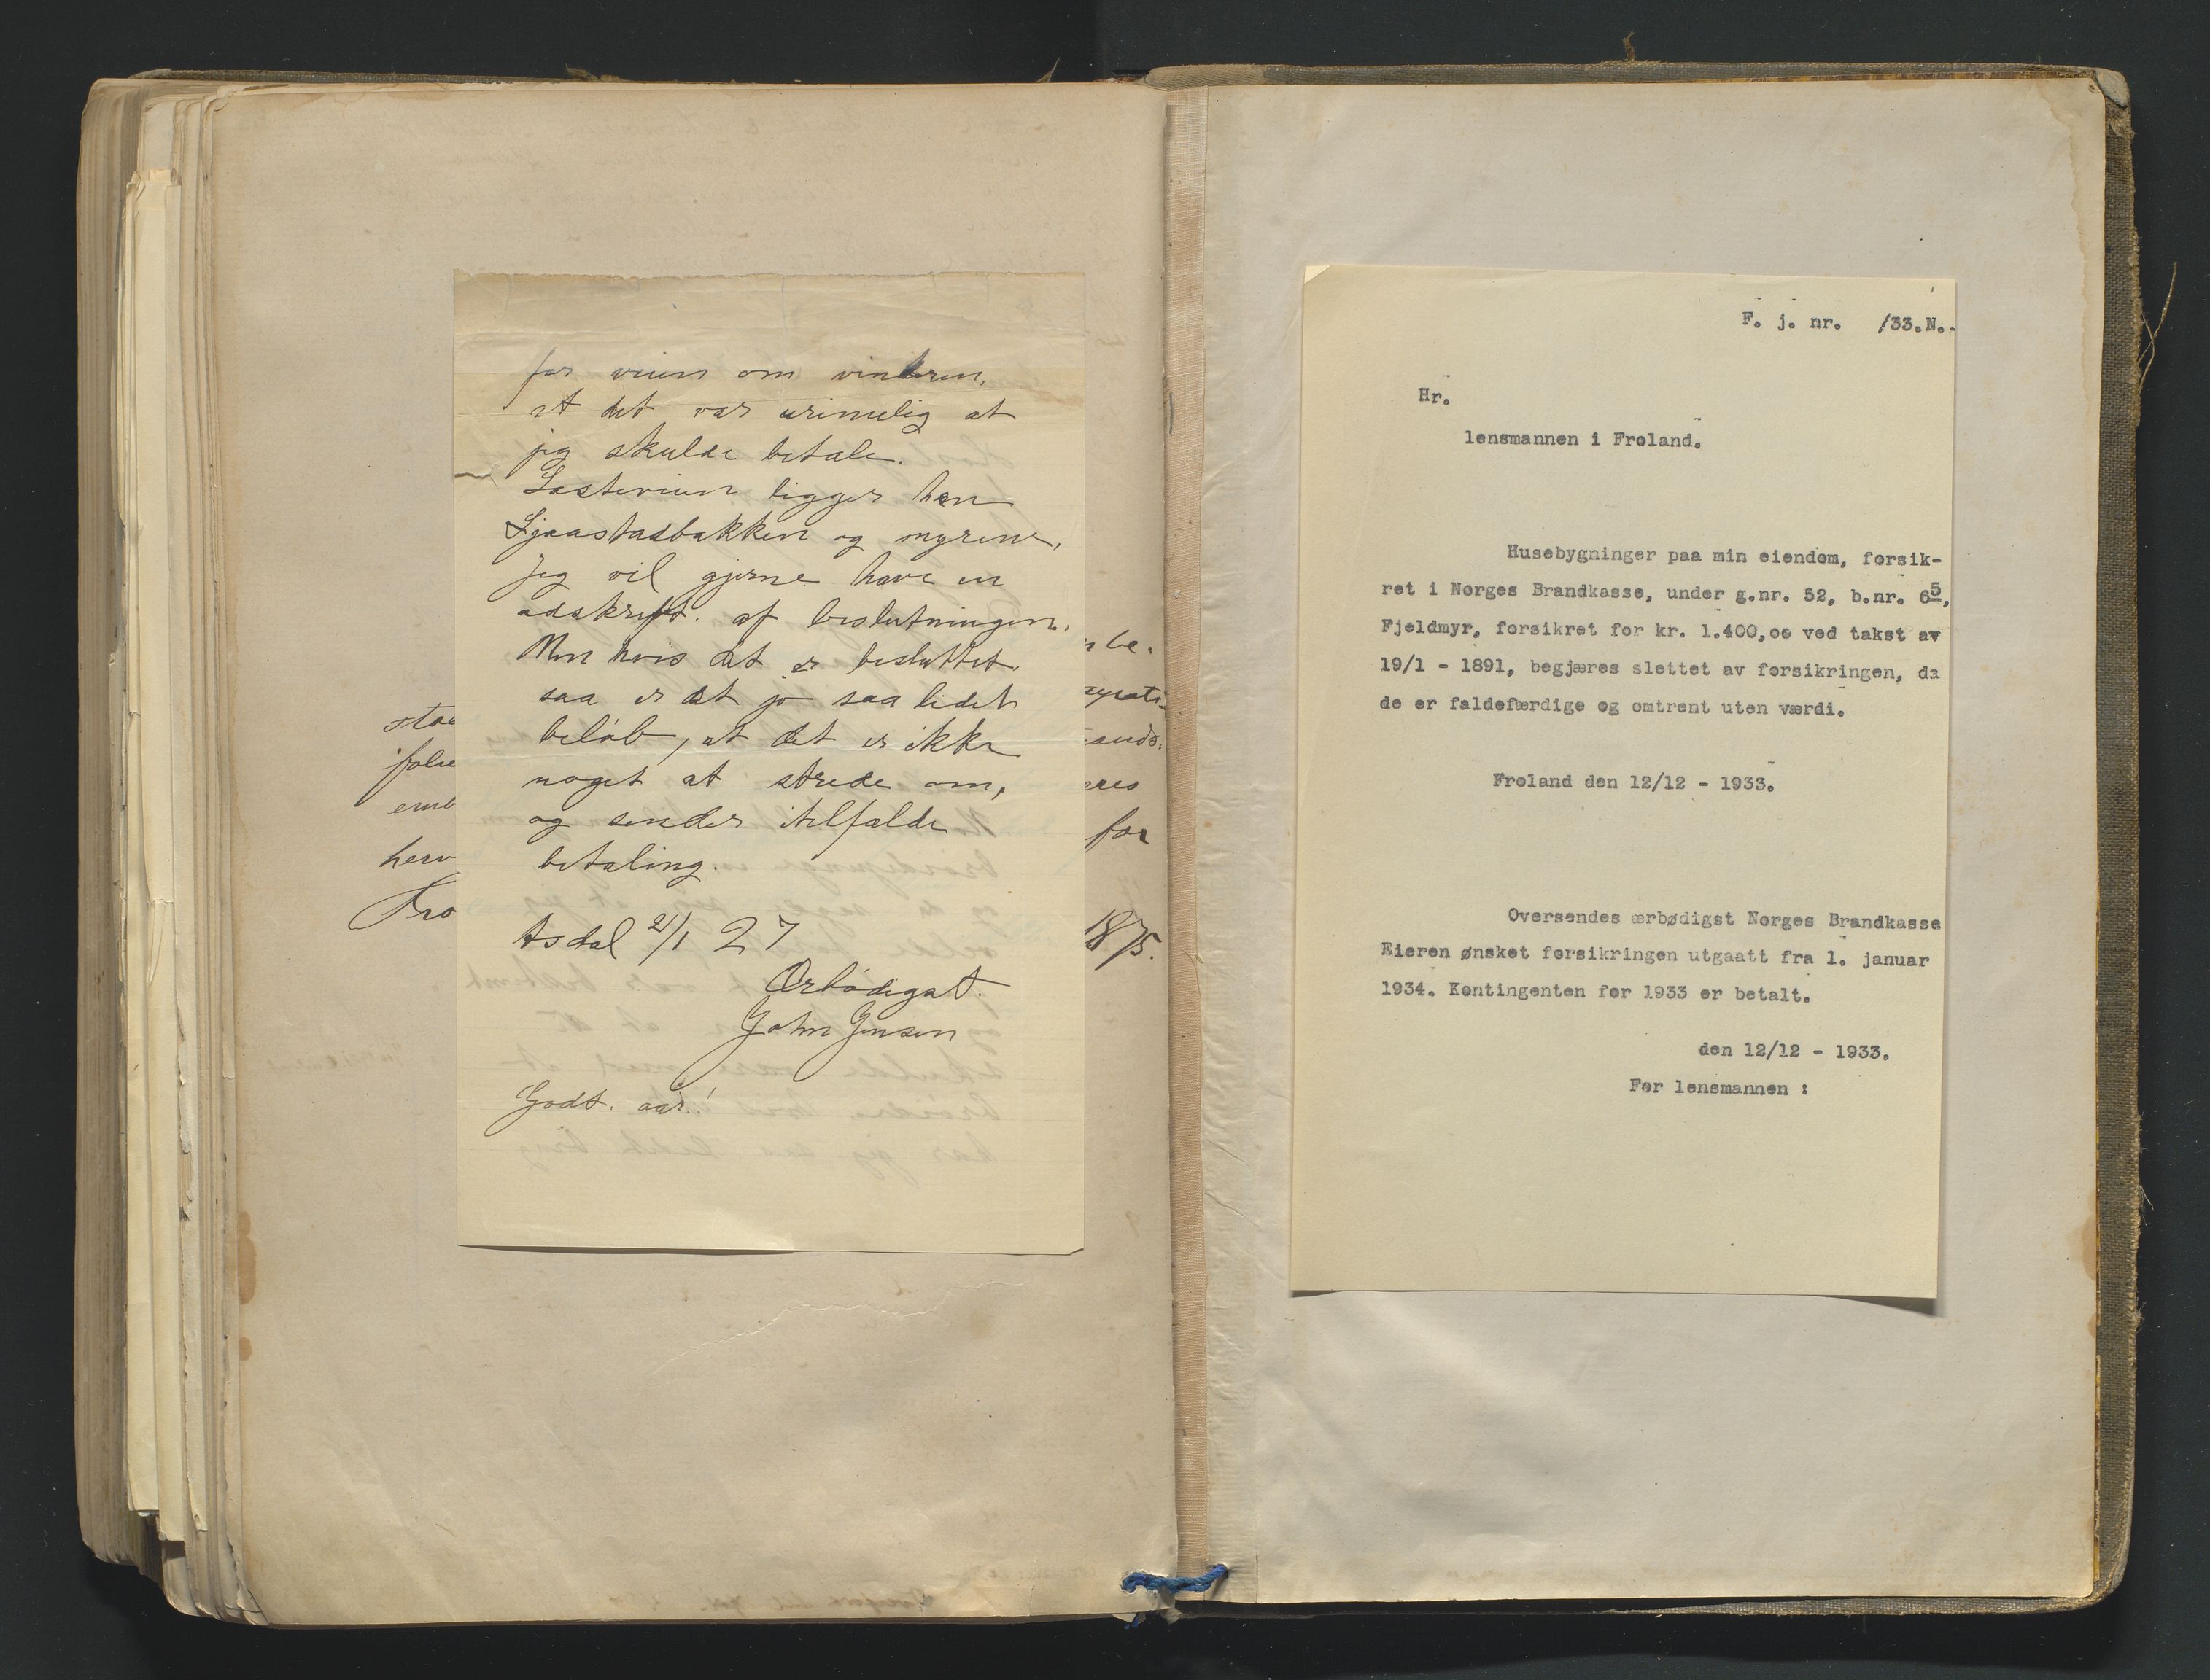 for veien om vinteren,
at det var urimelig at
jeg skulde betale.
ligger hen
og myrene,
Jeg vil gjerne have en
udskrift. af beslutningen.
Men hvis det er besluttet.
saa er det jo saa lidet
beløb, at det er ikke
noget at stride om,
og sender itilfælde
betaling.
Asdal 21/1 27
Ærbødigst.
John Jensen
Godt. aar!
emb
herv
Fro
n be.
for
1875.
F. j. nr. /33.N.-
Hr.
lensmannen i Froland.
Husebygninger paa min eiendom, forsik-
ret i Norges Brandkasse, under g.nr. 52, b.nr. 6⁵,
Fjeldmyr, forsikret for kr. 1.400,oo ved takst av
19/1 - 1891, begjæres slettet av forsikringen, da
de er faldefærdige og omtrent uten værdi.
Froland den 12/12 - 1933.
Oversendes ærbødigst Norges Brandkasse
Eieren ønsket forsikringen utgaatt fra 1. januar
1934. Kontingenten for 1933 er betalt.
den 12/12 - 1933.
For lensmannen :